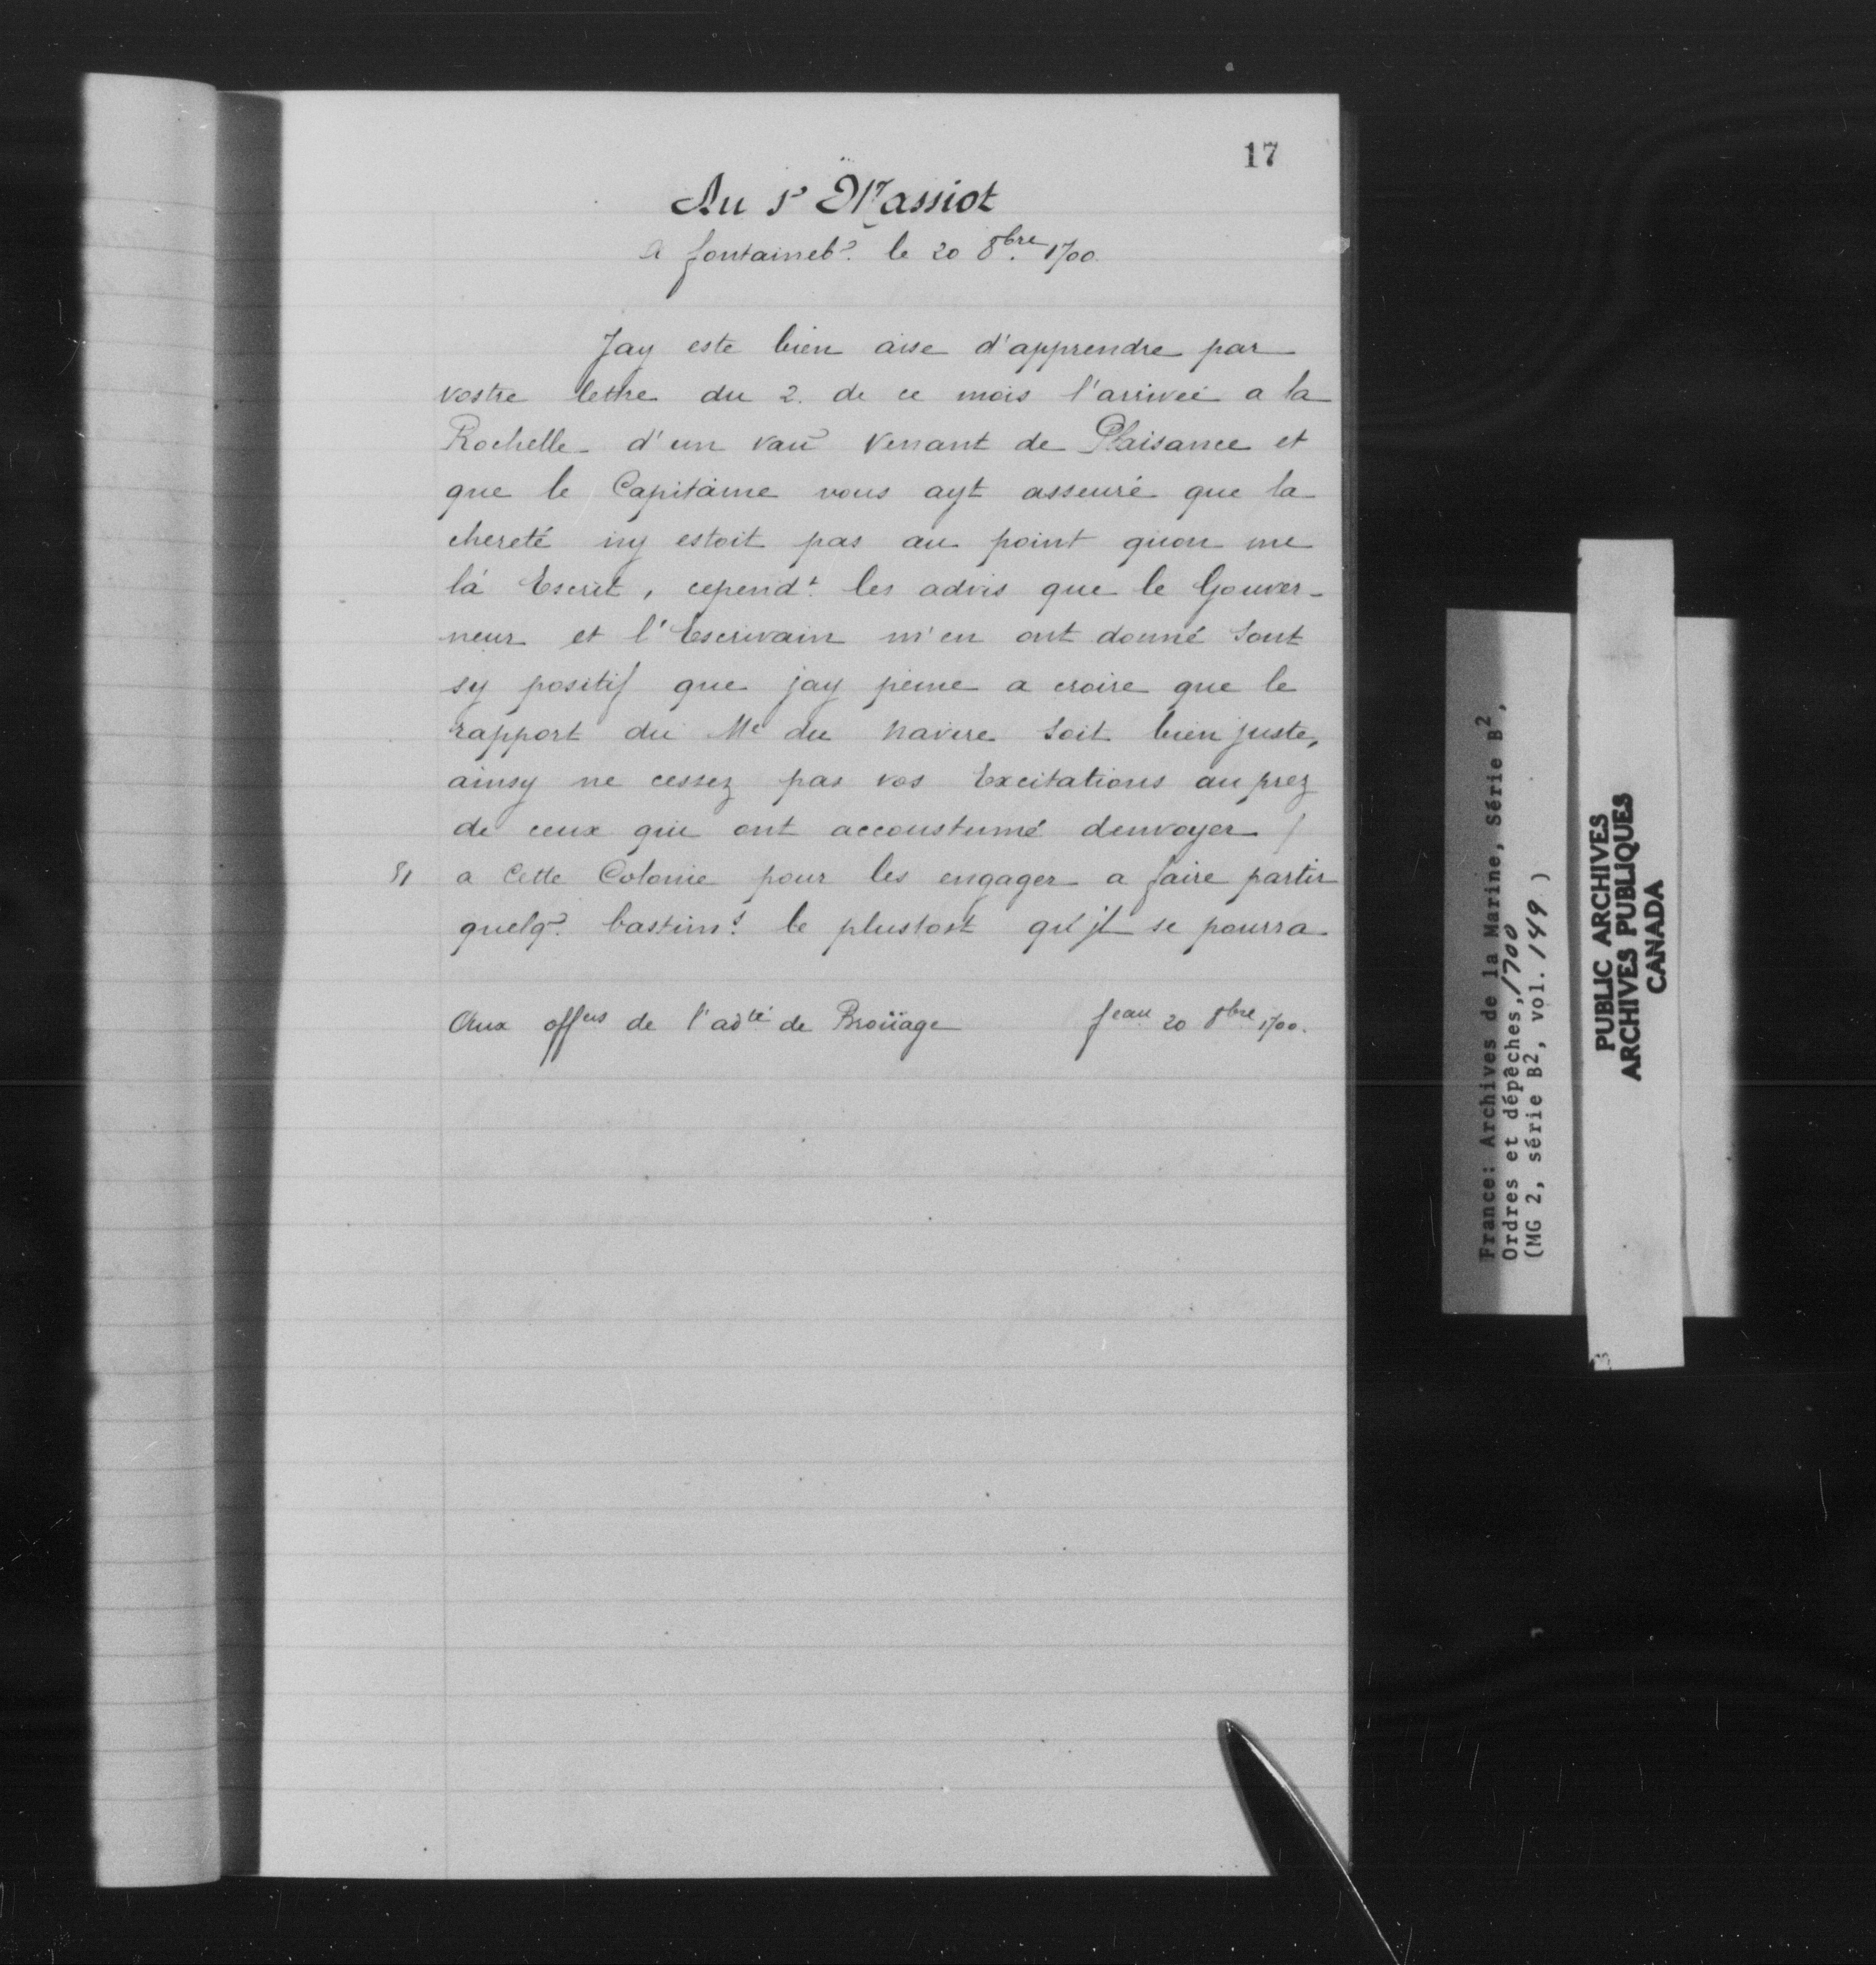 17
Au Sr Massiot
A fontaineb? le 20 8bre. 1700.
Jay este bien aise d'apprendre par
vostre lettre du 2. de ce mois l'arrivée a la
Rochelle d'un vau venant de Plaisance et
que le Capitaine vous ayt asseuré que la
chereté ny estoit pas au point quon me
la Escrit, cependt. les advis que le Gouver-
neur et l'Escrivain m'en ont donné sont
sy positif que jay peine a croire que le
rapport du Me du navire soit bien juste,
ainsy ne cessez pas vos Excitations auprez
de ceux qui ont accoustumé denvoyer /
a cette Colonie pour les engager a faire partir
quelq? bastims. le plustost qu'jl se pourra
Aux offers de l'adté de Broüage feau 20 8bre 1700.
France: Archives de la Marine, Série B2,
Ordres et dépêches, 1700
(MG 2, série B2, vol. 149)
PUBLIC ARCHIVES
ARCHIVES PUBLIQUES
CANADA